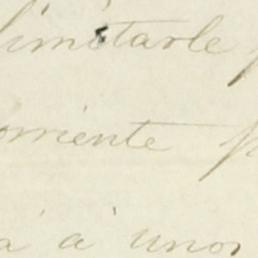 limitarle
orriente
a á unos